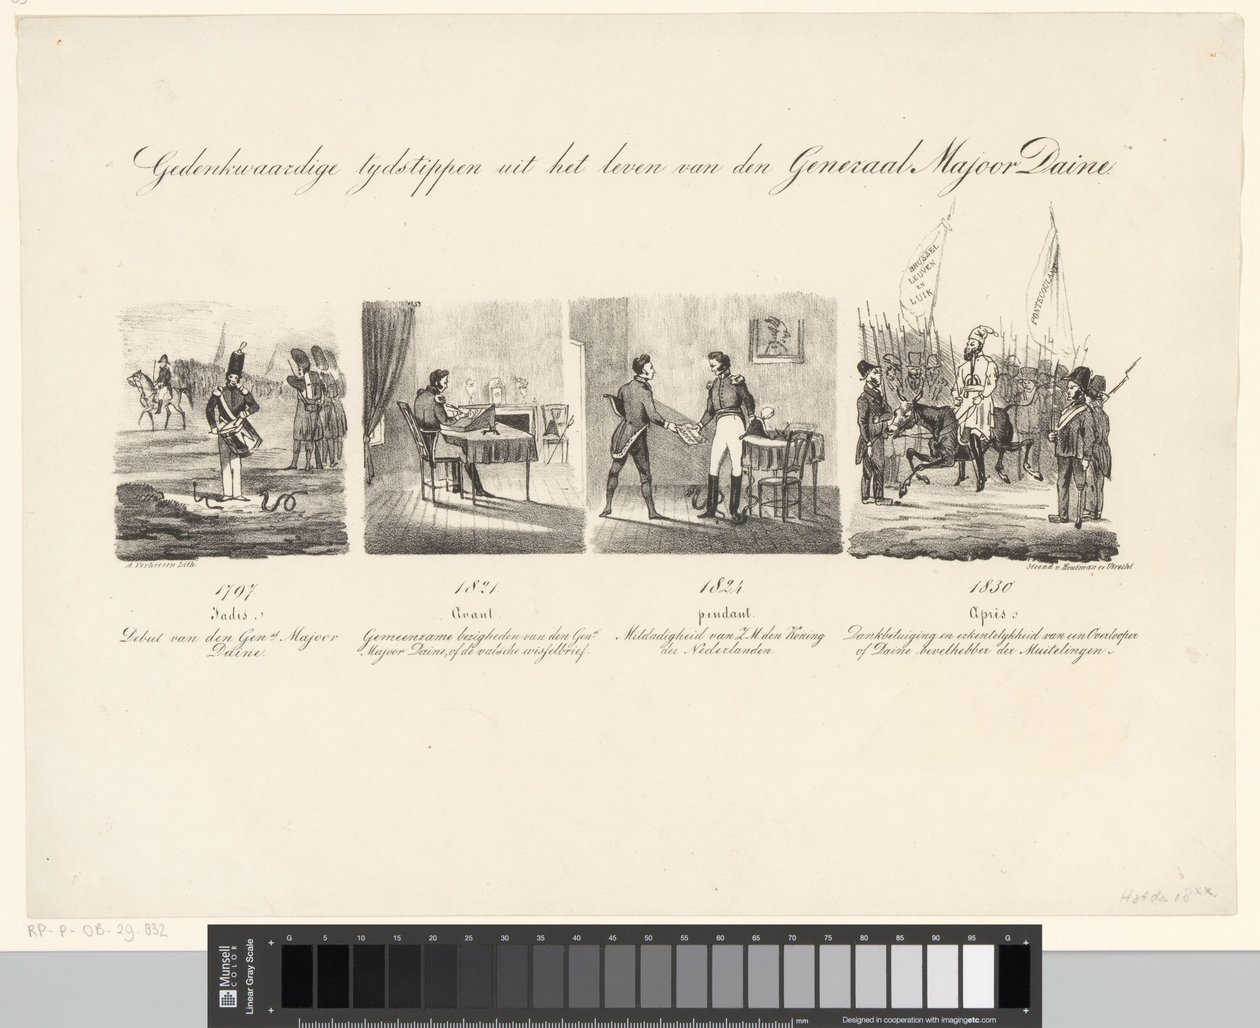 Gedenkwaardige tydstippen uit het leven van den Generaal Majoor Daine.
BRUSSEL
LEUVEN
EN
LUIK
PONTECOULANT
A. Verhoesen Lith:
Steend. v. Houtman te Utrecht
1797
Jadis.
Debut van den Genl. Majoor
Daine.
1821.
Avant.
Gemeenzame bezigheden van den Genl.
Majoor Daine, of de valsche wisselbrief.
1824.
pendant.
Mildadigheid van Z.M. den Koning
der Nederlanden.
1830.
Après.
Dankbetuiging en erkentelykheid van een Overlooper
of Daine bevelhebber der Muitelingen.
RP-P-OB-29.832
Munsell
COLOR
Linear Gray Scale
G 5 10 15 20 25 30 35 40 45 50 55 60 65 70 75 80 85 90 95 G
mm
Designed in cooperation with imagingetc.com